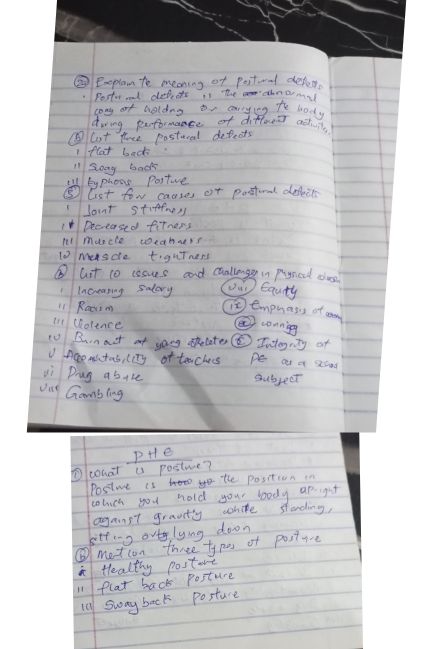 2a Explain te meaning of postural defects
. Postural defects is the abnormal
way of holding or carrying te body
during performance of different activities
b List three postural defects
i flat back
ii Sway back
iii kyphosis Posture
List four causes of postural defects
i Joint stiffness
ii Decreased fitness
iii Muscle weakness
iv Muscle tightness
b List 10 issues and challenges in physical
i Increasing salary
ii Racism
iii Violence
iv Burnout of young athletes
v Accountability of teachers
vi Drug abuse
vii Gambling
viii Equity
ix Emphasis of
x Integrity of
PE as a
Subject
PHE
1 What is posture?
Posture is the position in
which you hold your body upright
against gravity while standing,
sitting or lying down
b Mention three types of posture
i Healthy posture
ii flat back posture
iii Sway back posture